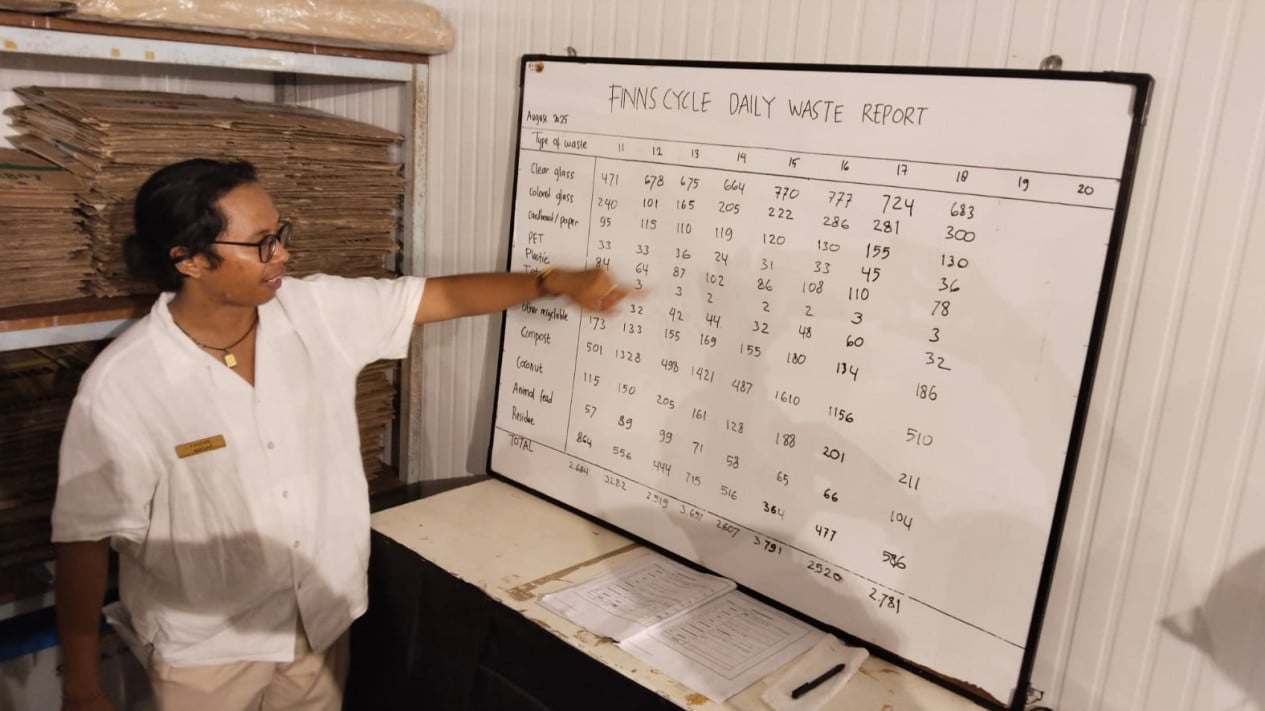 FINNS CYCLE DAILY WASTE REPORT
August 2025
Type of waste 11 12 13 14 15 16 17 18 19 20
Clear glass 471 678 675 664 770 777 724 683
Colored glass 240 101 165 205 222 286 281 300
Cardboard/paper 95 115 110 119 120 130 155 130
PET 33 33 36 24 31 33 45 36
Plastic 84 64 87 102 86 108 110 78
3 3 2 2 2 3 3
Other recyclable 32 42 44 32 48 60 32
173 133 155 169 155 180 134 186
Compost 501 1328 498 1421 487 1610 1156 510
Coconut 115 150 205 161 128 188 201 211
Animal feed 57 89 99 71 58 65 66 104
Residue 864 556 444 715 516 364 477 586
TOTAL 2.684 3282 2.519 3.697 2607 3791 2520 2.781